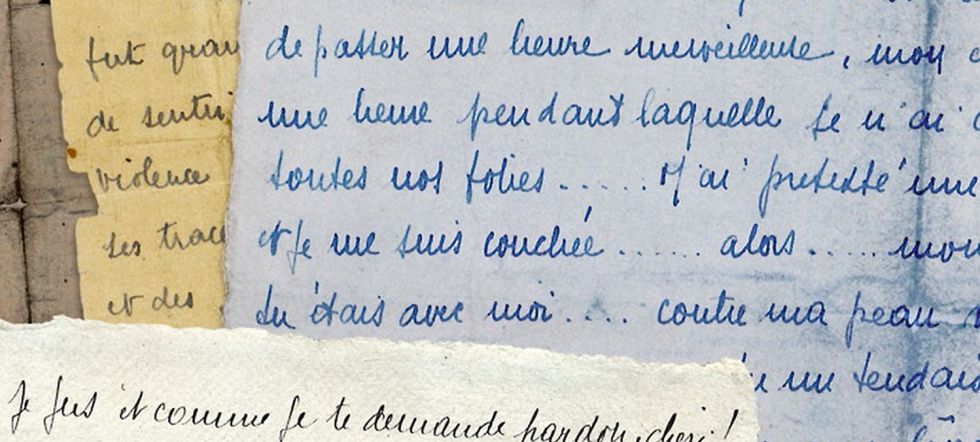 fut gran
de senti
violence
ses trac
et des
de passer une heure merveilleuse, mon
une heure pendant laquelle je n'ai
toutes nos folies...... J'ai prétexté une
et je me suis couchée...... alors..... mon
tu étais avec moi.... contre ma peau
un tendais
Je fus et comme je te demande pardon, chéri!